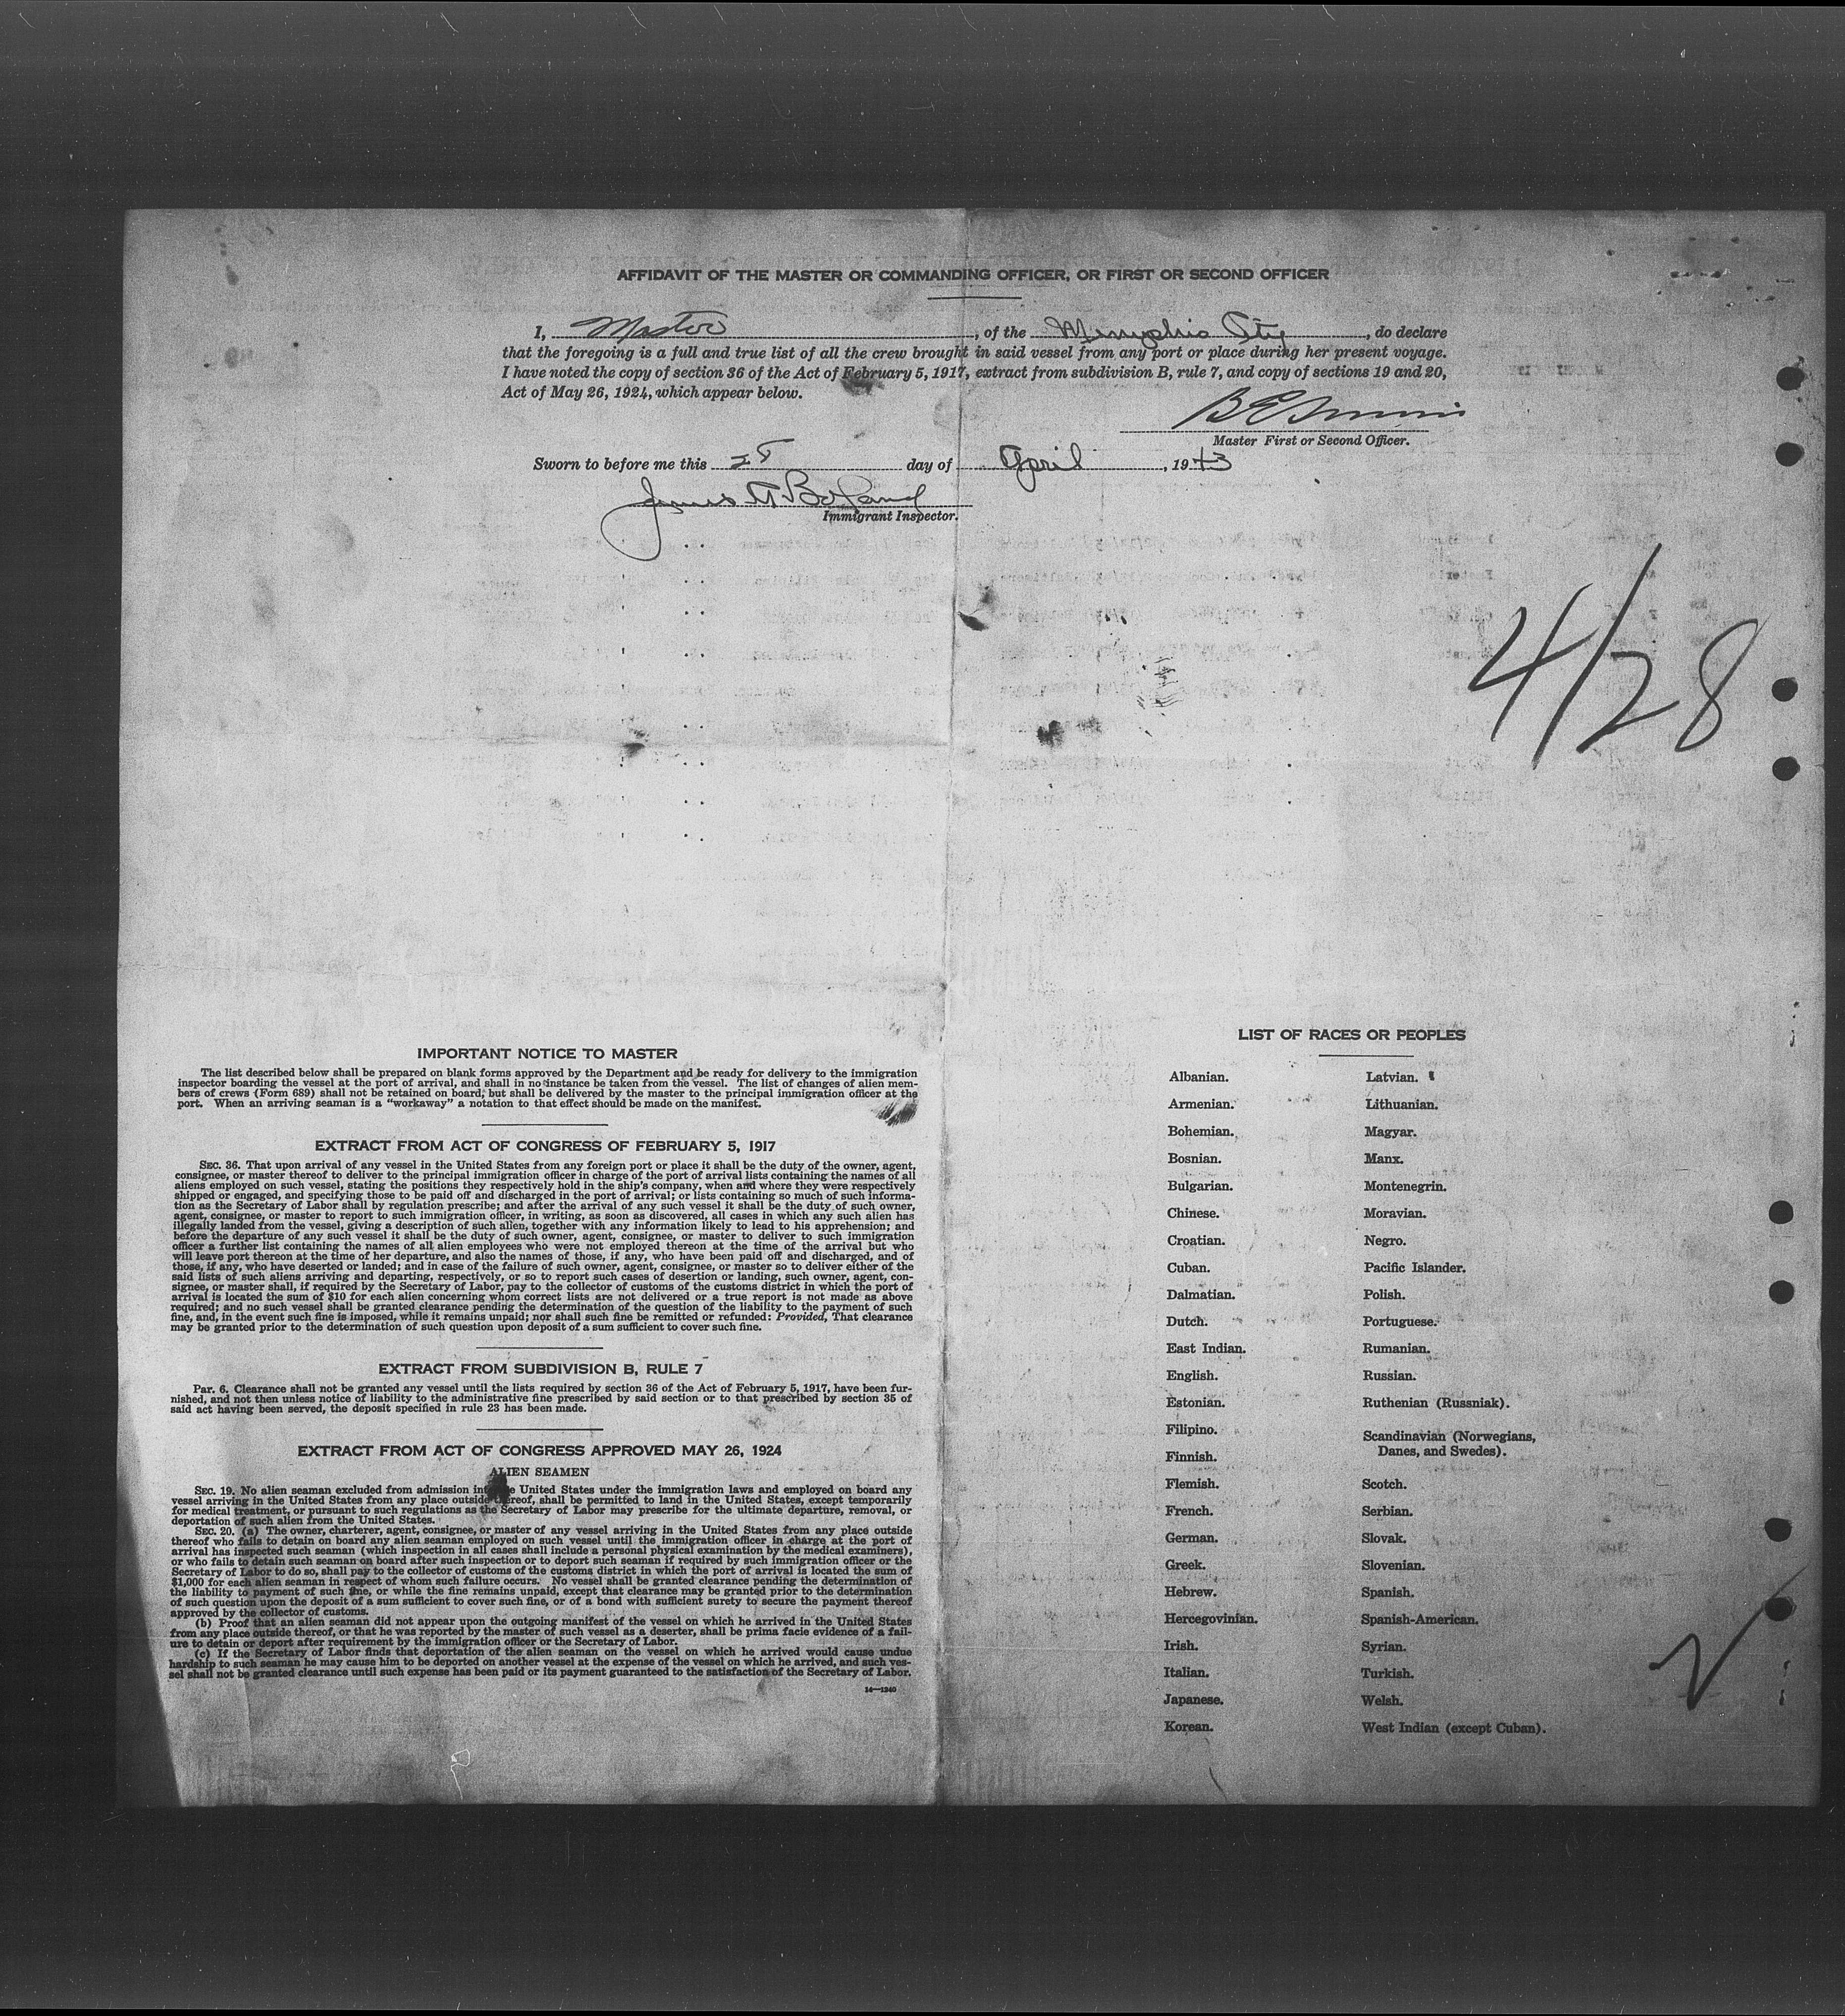 AFFIDAVIT OF THE MASTER OR COMMANDING OFFICER, OR FIRST OR SECOND OFFICER
I, Master, of the Memphis City, do declare
that the foregoing is a full and true list of all the crew brought in said vessel from any port or place during her present voyage.
I have noted the copy of section 36 of the Act of February 5, 1917, extract from subdivision B, rule 7, and copy of sections 19 and 20,
Act of May 26, 1924, which appear below.
Master First or Second Officer.
Sworn to before me this 28 day of April, 1943
James
Immigrant Inspector.
4/28
IMPORTANT NOTICE TO MASTER
The list described below shall be prepared on blank forms approved by the Department and be ready for delivery to the immigration
inspector boarding the vessel at the port of arrival, and shall in no instance be taken from the vessel. The list of changes of alien mem-
bers of crews (Form 689) shall not be retained on board, but shall be delivered by the master to the principal immigration officer at the
port. When an arriving seaman is a "workaway" a notation to that effect should be made on the manifest.
EXTRACT FROM ACT OF CONGRESS OF FEBRUARY 5, 1917
SEC. 36. That upon arrival of any vessel in the United States from any foreign port or place it shall be the duty of the owner, agent,
consignee, or master thereof to deliver to the principal immigration officer in charge of the port of arrival lists containing the names of all
aliens employed on such vessel, stating the positions they respectively hold in the ship's company, when and where they were respectively
shipped or engaged, and specifying those to be paid off and discharged in the port of arrival; or lists containing so much of such informa-
tion as the Secretary of Labor shall by regulation prescribe; and after the arrival of any such vessel it shall be the duty of such owner,
agent, consignee, or master to report to such immigration officer, in writing, as soon as discovered, all cases in which any such alien has
illegally landed from the vessel, giving a description of such alien, together with any information likely to lead to his apprehension; and
before the departure of any such vessel it shall be the duty of such owner, agent, consignee, or master to deliver to such immigration
officer a further list containing the names of all alien employees who were not employed thereon at the time of the arrival but who
will leave port thereon at the time of her departure, and also the names of those, if any, who have been paid off and discharged, and of
those, if any, who have deserted or landed; and in case of the failure of such owner, agent, consignee, or master so to deliver either of the
said lists of such aliens arriving and departing, respectively, or so to report such cases of desertion or landing, such owner, agent, con-
signee, or master shall, if required by the Secretary of Labor, pay to the collector of customs of the customs district in which the port of
arrival is located the sum of $10 for each alien concerning whom correct lists are not delivered or a true report is not made as above
required; and no such vessel shall be granted clearance pending the determination of the question of the liability to the payment of such
fine, and, in the event such fine is imposed, while it remains unpaid; nor shall such fine be remitted or refunded: Provided, That clearance
may be granted prior to the determination of such question upon deposit of a sum sufficient to cover such fine.
EXTRACT FROM SUBDIVISION B, RULE 7
Par. 6. Clearance shall not be granted any vessel until the lists required by section 36 of the Act of February 5, 1917, have been fur-
nished, and not then unless notice of liability to the administrative fine prescribed by said section or to that prescribed by section 35 of
said act having been served, the deposit specified in rule 23 has been made.
EXTRACT FROM ACT OF CONGRESS APPROVED MAY 26, 1924
ALIEN SEAMEN
SEC. 19. No alien seaman excluded from admission into the United States under the immigration laws and employed on board any
vessel arriving in the United States from any place outside thereof, shall be permitted to land in the United States, except temporarily
for medical treatment, or pursuant to such regulations as the Secretary of Labor may prescribe for the ultimate departure, removal, or
deportation of such alien from the United States.
SEC. 20. (a) The owner, charterer, agent, consignee, or master of any vessel arriving in the United States from any place outside
thereof who fails to detain on board any alien seaman employed on such vessel until the immigration officer in charge at the port of
arrival has inspected such seaman (which inspection in all cases shall include a personal physical examination by the medical examiners),
or who fails to detain such seaman on board after such inspection or to deport such seaman if required by such immigration officer or the
Secretary of Labor to do so, shall pay to the collector of customs of the customs district in which the port of arrival is located the sum of
$1,000 for each alien seaman in respect of whom such failure occurs. No vessel shall be granted clearance pending the determination of
the liability to payment of such fine, or while the fine remains unpaid, except that clearance may be granted prior to the determination
of such question upon the deposit of a sum sufficient to cover such fine, or of a bond with sufficient surety to secure the payment thereof
approved by the collector of customs.
(b) Proof that an alien seaman did not appear upon the outgoing manifest of the vessel on which he arrived in the United States
from any place outside thereof, or that he was reported by the master of such vessel as a deserter, shall be prima facie evidence of a fail-
ure to detain or deport after requirement by the immigration officer or the Secretary of Labor.
(c) If the Secretary of Labor finds that deportation of the alien seaman on the vessel on which he arrived would cause undue
hardship to such seaman he may cause him to be deported on another vessel at the expense of the vessel on which he arrived, and such ves-
sel shall not be granted clearance until such expense has been paid or its payment guaranteed to the satisfaction of the Secretary of Labor.
14—1240
LIST OF RACES OR PEOPLES
Albanian.
Armenian.
Bohemian.
Bosnian.
Bulgarian.
Chinese.
Croatian.
Cuban.
Dalmatian.
Dutch.
East Indian.
English.
Estonian.
Filipino.
Finnish.
Flemish.
French.
German.
Greek.
Hebrew.
Hercegovinian.
Irish.
Italian.
Japanese.
Korean.
Latvian.
Lithuanian.
Magyar.
Manx.
Montenegrin.
Moravian.
Negro.
Pacific Islander.
Polish.
Portuguese.
Rumanian.
Russian.
Ruthenian (Russniak).
Scandinavian (Norwegians,
Danes, and Swedes).
Scotch.
Serbian.
Slovak.
Slovenian.
Spanish.
Spanish-American.
Syrian.
Turkish.
Welsh.
West Indian (except Cuban).